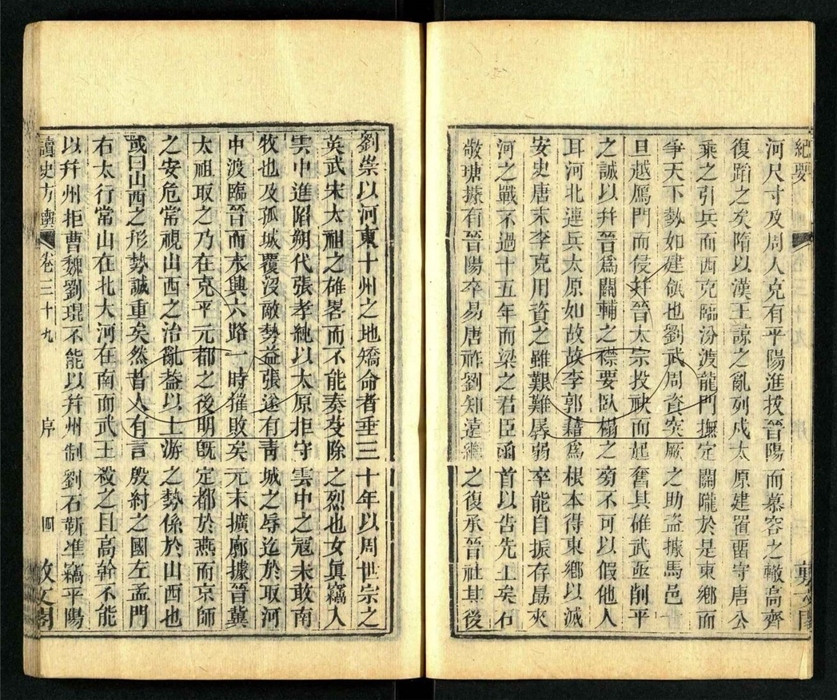 紀要
河尺寸及周人克有平陽進拔晉陽而慕容之轍高齊
復蹈之矣隋以漢王諒之亂列戍太原建置畱守唐公
乘之引兵而西克臨汾渡龍門撫定關隴於是東鄉而
爭天下勢如建瓴也劉武周資突厥之助盜據馬邑一
旦越鴈門而侵幷晉太宗投袂而起奮其雄武亟削平
之誠以幷晉爲關輔之襟要臥榻之旁不可以假他人
耳河北連兵太原如故故李郭藉爲根本得東鄉以滅
安史唐末李克用資之雖艱難孱弱卒能自振存勗夾
河之戰不過十五年而梁之君臣函首以告先王矣石
敬瑭據有晉陽卒易唐祚劉知遠繼之復承晉社其後
劉崇以河東十州之地矯命者垂三十年以周世宗之
英武宋太祖之雄畧而不能奏芟除之烈也女眞竊入
雲中進陷朔代張孝純以太原拒守雲中之寇未敢南
牧也及孤城覆沒敵勢益張遂有靑城之辱迄於取河
中渡臨晉而永興六路一時摧敗矣元末擴廓據晉冀
太祖取之乃在克平元都之後明旣定都於燕而京師
之安危常視山西之治亂葢以上游之勢係於山西也
或曰山西之形勢誠重矣然昔人有言殷紂之國左孟門
右太行常山在北大河在南而武王殺之且高幹不能
以幷州拒曹魏劉琨不能以幷州制劉石靳準竊平陽
讀史方輿 卷三十九 序 四 敷文閣